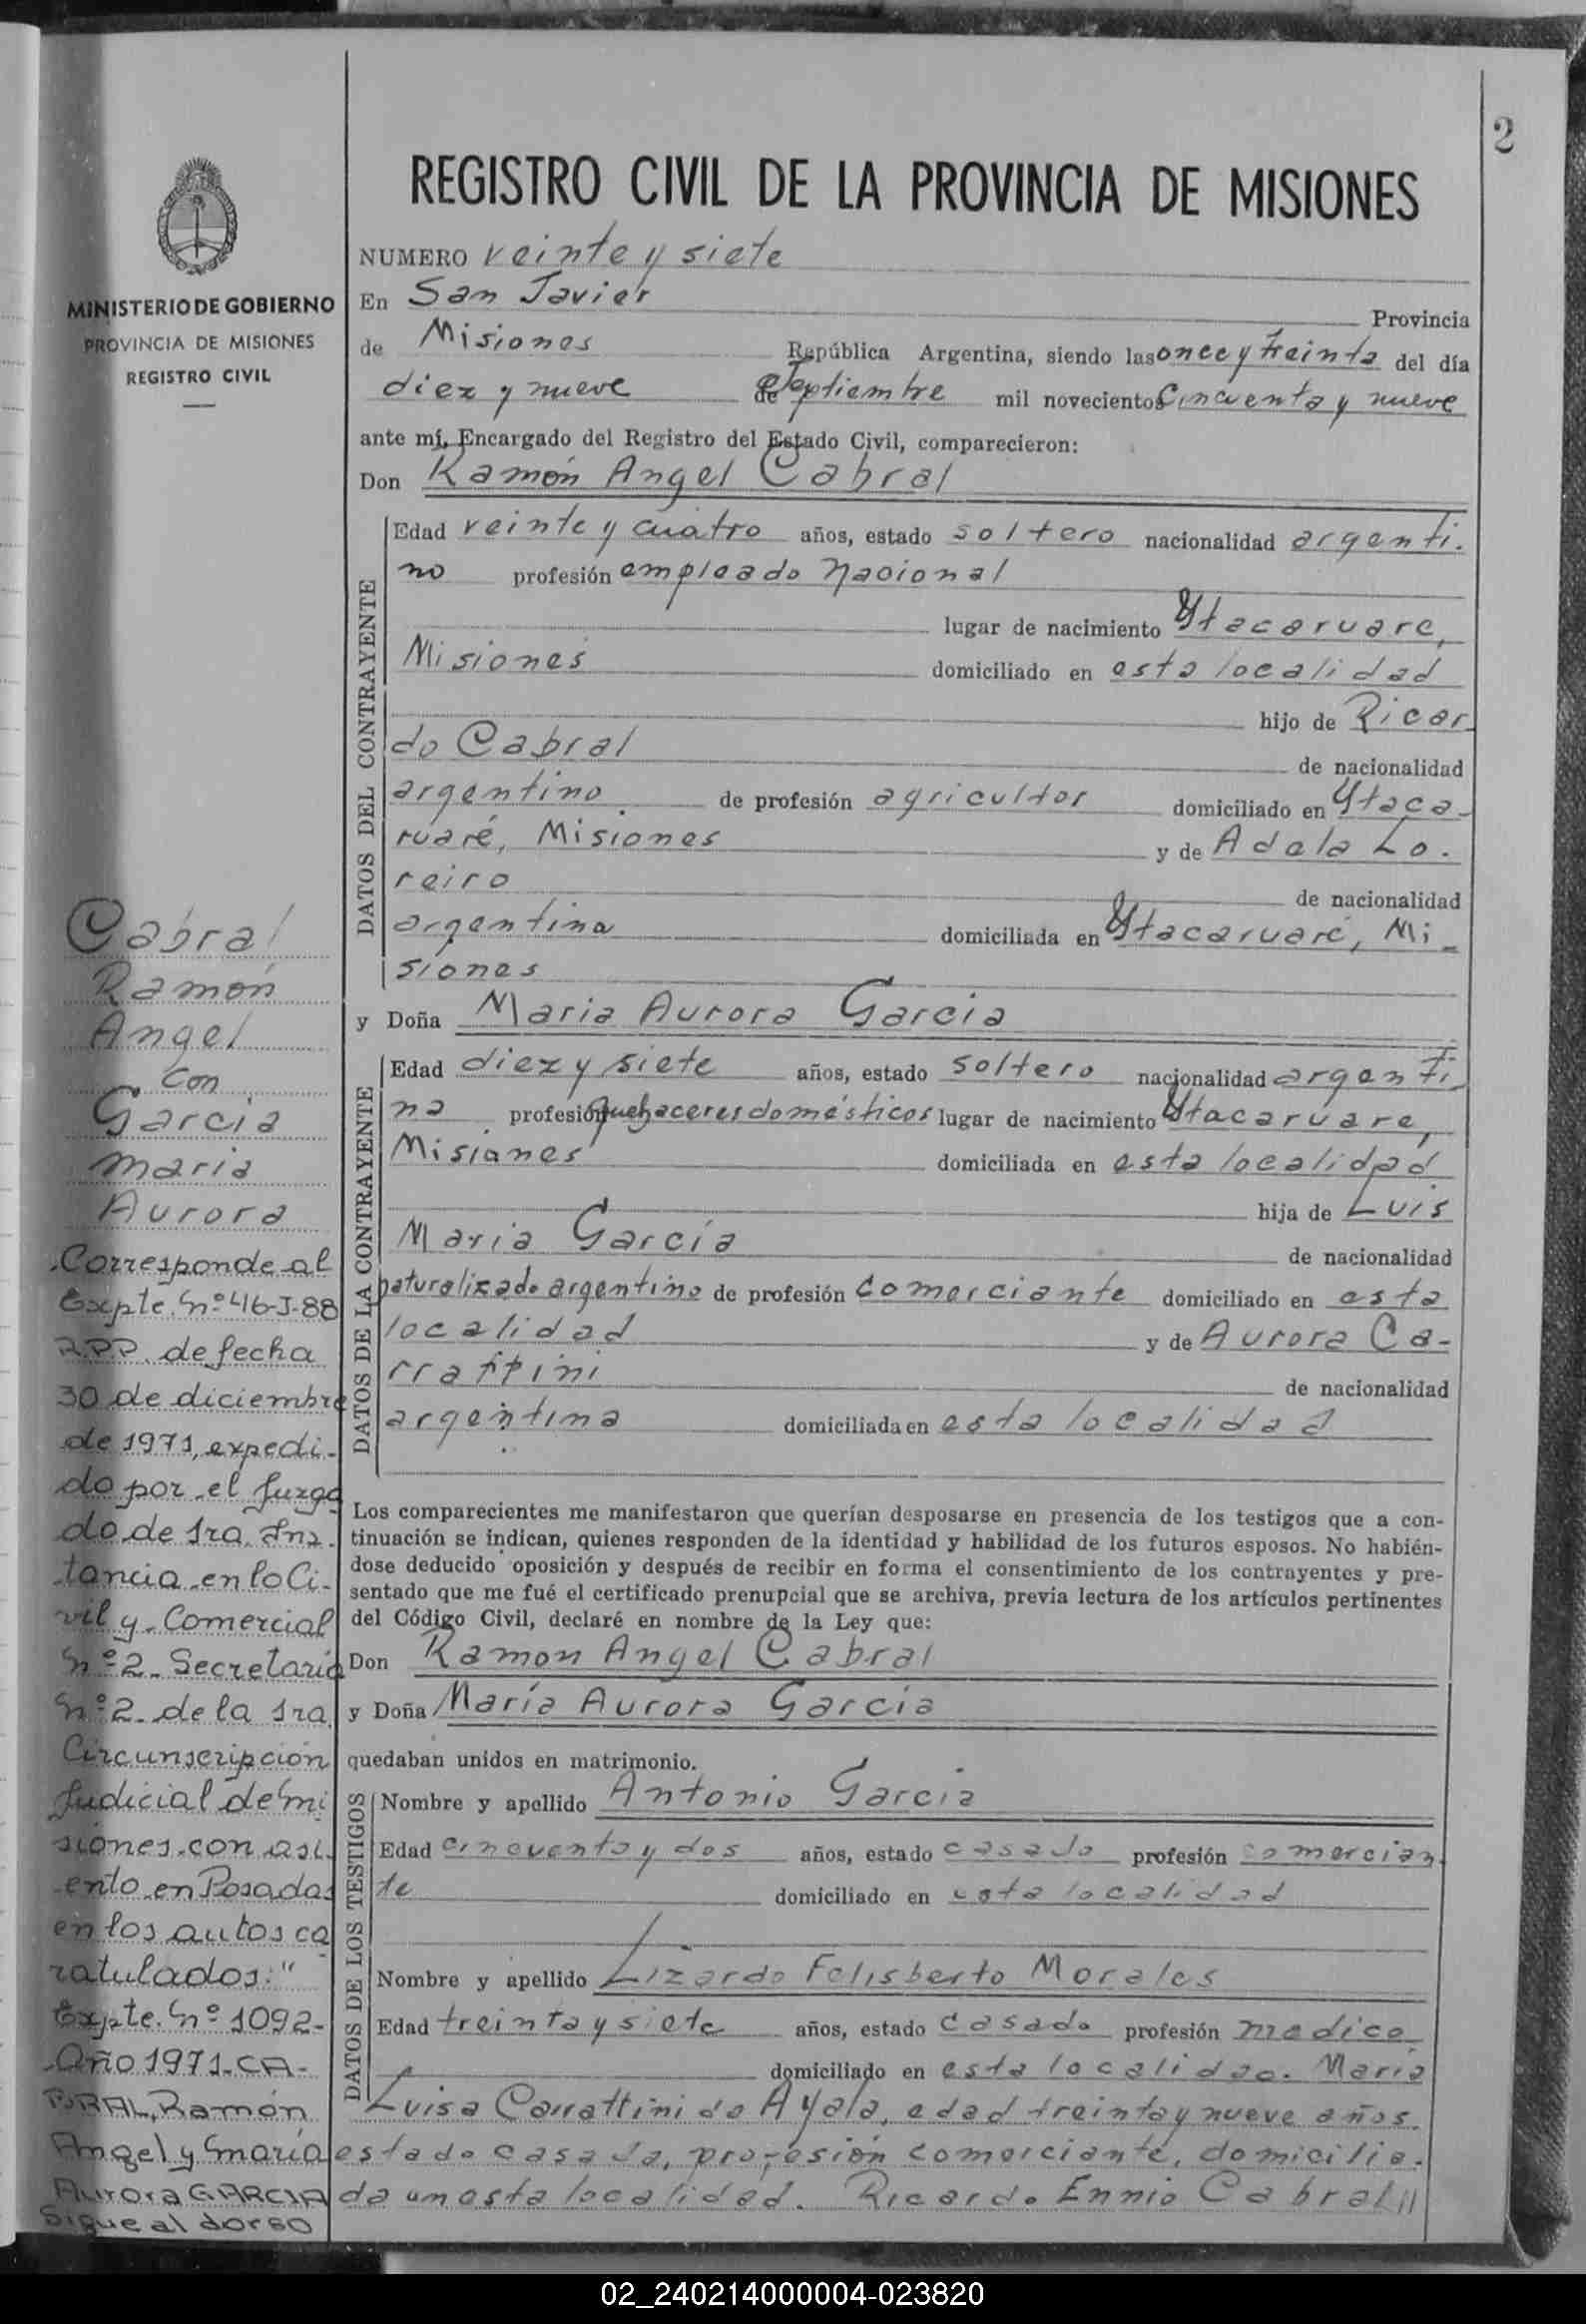 2
REGISTRO CIVIL DE LA PROVINCIA DE MISIONES
MINISTERIO DE GOBIERNO
PROVINCIA DE MISIONES
REGISTRO CIVIL
NUMERO veinte y siete
En San Javier Provincia
de Misiones República Argentina, siendo las once y treinta del día
diez y nueve de Septiembre mil novecientos Cincuenta y nueve
ante mí, Encargado del Registro del Estado Civil, comparecieron:
Don Ramón Angel Cabral
DATOS DEL CONTRAYENTE
Edad veinte y cuatro años, estado soltero nacionalidad argenti.
no profesión empleado Nacional
lugar de nacimiento Ytacaruare,
Misiones domiciliado en esta localidad
hijo de Ricar
do Cabral de nacionalidad
argentino de profesión agricultor domiciliado en Ytaca-
ruaré, Misiones y de Adela Lo.
reiro de nacionalidad
argentina domiciliada en Ytacaruaré, Mi-
siones
y Doña Maria Aurora Garcia
DATOS DE LA CONTRAYENTE
Edad diez y siete años, estado soltero nacionalidad argenti
na profesión quehaceres domésticos lugar de nacimiento Ytacaruare,
Misiones domiciliada en esta localidad
hija de Luis
Maria García de nacionalidad
naturalizado argentino de profesión comerciante domiciliado en esta
localidad y de Aurora Ca-
rrattini de nacionalidad
argentina domiciliada en esta localidad
Los comparecientes me manifestaron que querían desposarse en presencia de los testigos que a con-
tinuación se indican, quienes responden de la identidad y habilidad de los futuros esposos. No habién-
dose deducido oposición y después de recibir en forma el consentimiento de los contrayentes y pre-
sentado que me fué el certificado prenupcial que se archiva, previa lectura de los artículos pertinentes
del Código Civil, declaré en nombre de la Ley que:
Don Ramon Angel Cabral
y Doña María Aurora Garcia
quedaban unidos en matrimonio.
DATOS DE LOS TESTIGOS
Nombre y apellido Antonio Garcia
Edad cincuenta y dos años, estado casado profesión comercian
te domiciliado en esta localidad
Nombre y apellido Lizardo Felisberto Morales
Edad treinta y siete años, estado casado profesión medico
domiciliado en esta localidad. Maria
Luisa Carrattini de Ayala, edad treinta y nueve años.
estado casada, profesión comerciante, domicilia.
da en esta localidad. Ricardo Ennio Cabral //
Cabral
Ramón
Angel
con
Garcia
Maria
Aurora
Corresponde al
Expte. Nº 46-J-88
R.P.P. de fecha
30 de diciembre
de 1971, expedi-
do por el Juzga
do de 1ra. Ins.
tancia en lo Ci-
vil y Comercial
Nº 2 - Secretaría
Nº 2 - de la 1ra
Circunscripción
Judicial de Mi
siones con asi
ento en Posadas
en los autos ca
ratulados: "
Expte. Nº 1092-
Año 1971-CA-
BRAL, Ramón
Angel y María
Aurora GARCIA
Sigue al dorso
02_240214000004-023820